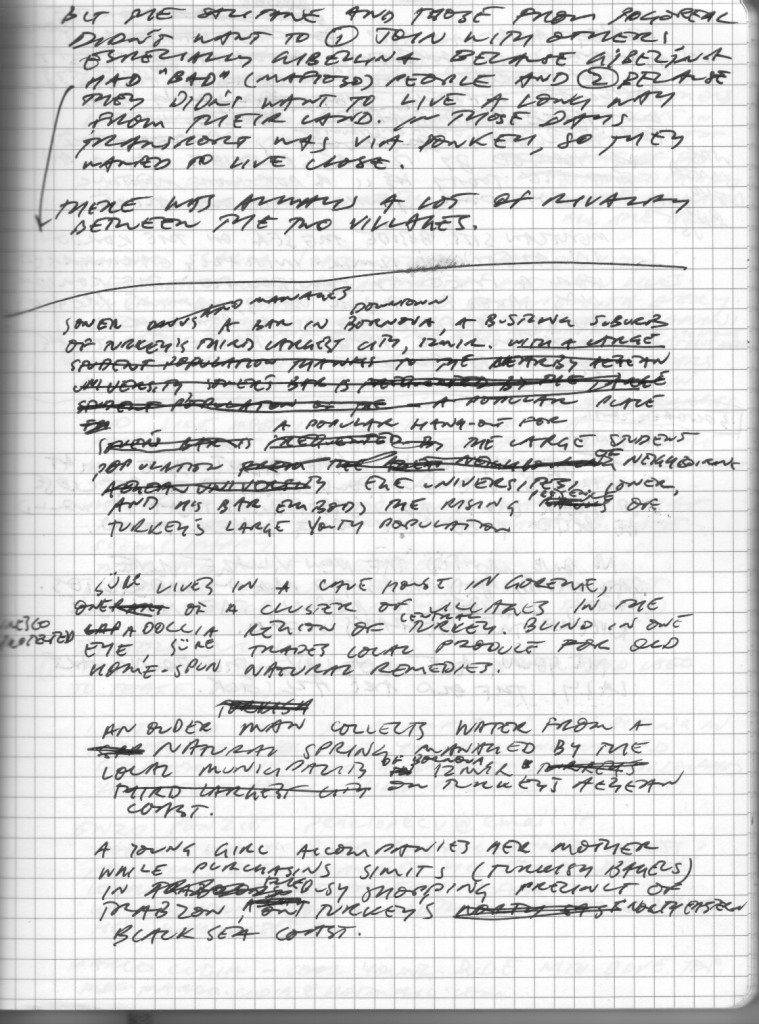 BUT THE SALITANE AND THOSE FROM POGGOREAL
DIDN'T WANT TO ① JOIN WITH OTHERS
ESPECIALLY GIBELLINA BECAUSE GIBELLINA
HAD "BAD" (MAFIOSO) PEOPLE AND ② BECAUSE
THEY DIDN'T WANT TO LIVE A LONG WAY
FROM THEIR LAND. IN THOSE DAYS
TRANSPORT WAS VIA DONKEY, SO THEY
WANTED TO LIVE CLOSE.
THERE WAS ALWAYS A LOT OF RIVALRY
BETWEEN THE TWO VILLAGES.
AND MANAGES DOWNTOWN
SONER OWNS A BAR IN BORNOVA, A BUSTLING SUBURB
OF TURKEY'S THIRD LARGEST CITY, IZMIR. WITH A LARGE
STUDENT POPULATION THANKS TO THE NEARBY AEGEAN
UNIVERSITY SONER'S BAR IS FREQUENTED BY THE LARGE
STUDENT POPULATION OF THE A POPULAR PLACE
A POPULAR HANG-OUT FOR
SONER'S BAR IS FREQUENTED BY THE LARGE STUDENT
POPULATION FROM THE OF NEIGHBORING
AEGEAN UNIVERSITY EGE UNIVERSITY, SONER,
AND HIS BAR EMBODY THE RISING OF
TURKEY'S LARGE YOUTH POPULATION
SÜNE LIVES IN A CAVE HOUSE IN GOREME,
ONE OF A CLUSTER OF VILLAGES IN THE
UNESCO PROTECTED CAPADOCCIA REGION OF CENTRAL TURKEY. BLIND IN ONE
EYE, SÜNE TRADES LOCAL PRODUCE FOR OLD
HOME-SPUN NATURAL REMEDIES.
TURKISH
AN OLDER MAN COLLECTS WATER FROM A
NATURAL SPRING MANAGED BY THE
LOCAL MUNICIPALITY OF BORNOVA IZMIR TURKEY'S
THIRD LARGEST CITY ON TURKEY'S AEGEAN
COAST.
A YOUNG GIRL ACCOMPANIES HER MOTHER
WHILE PURCHASING SIMITS (TURKISH BAGELS)
IN BUSY SHOPPING PRECINCT OF
TRABZON, ON TURKEY'S NORTH EAST NORTHEASTERN
BLACK SEA COAST.